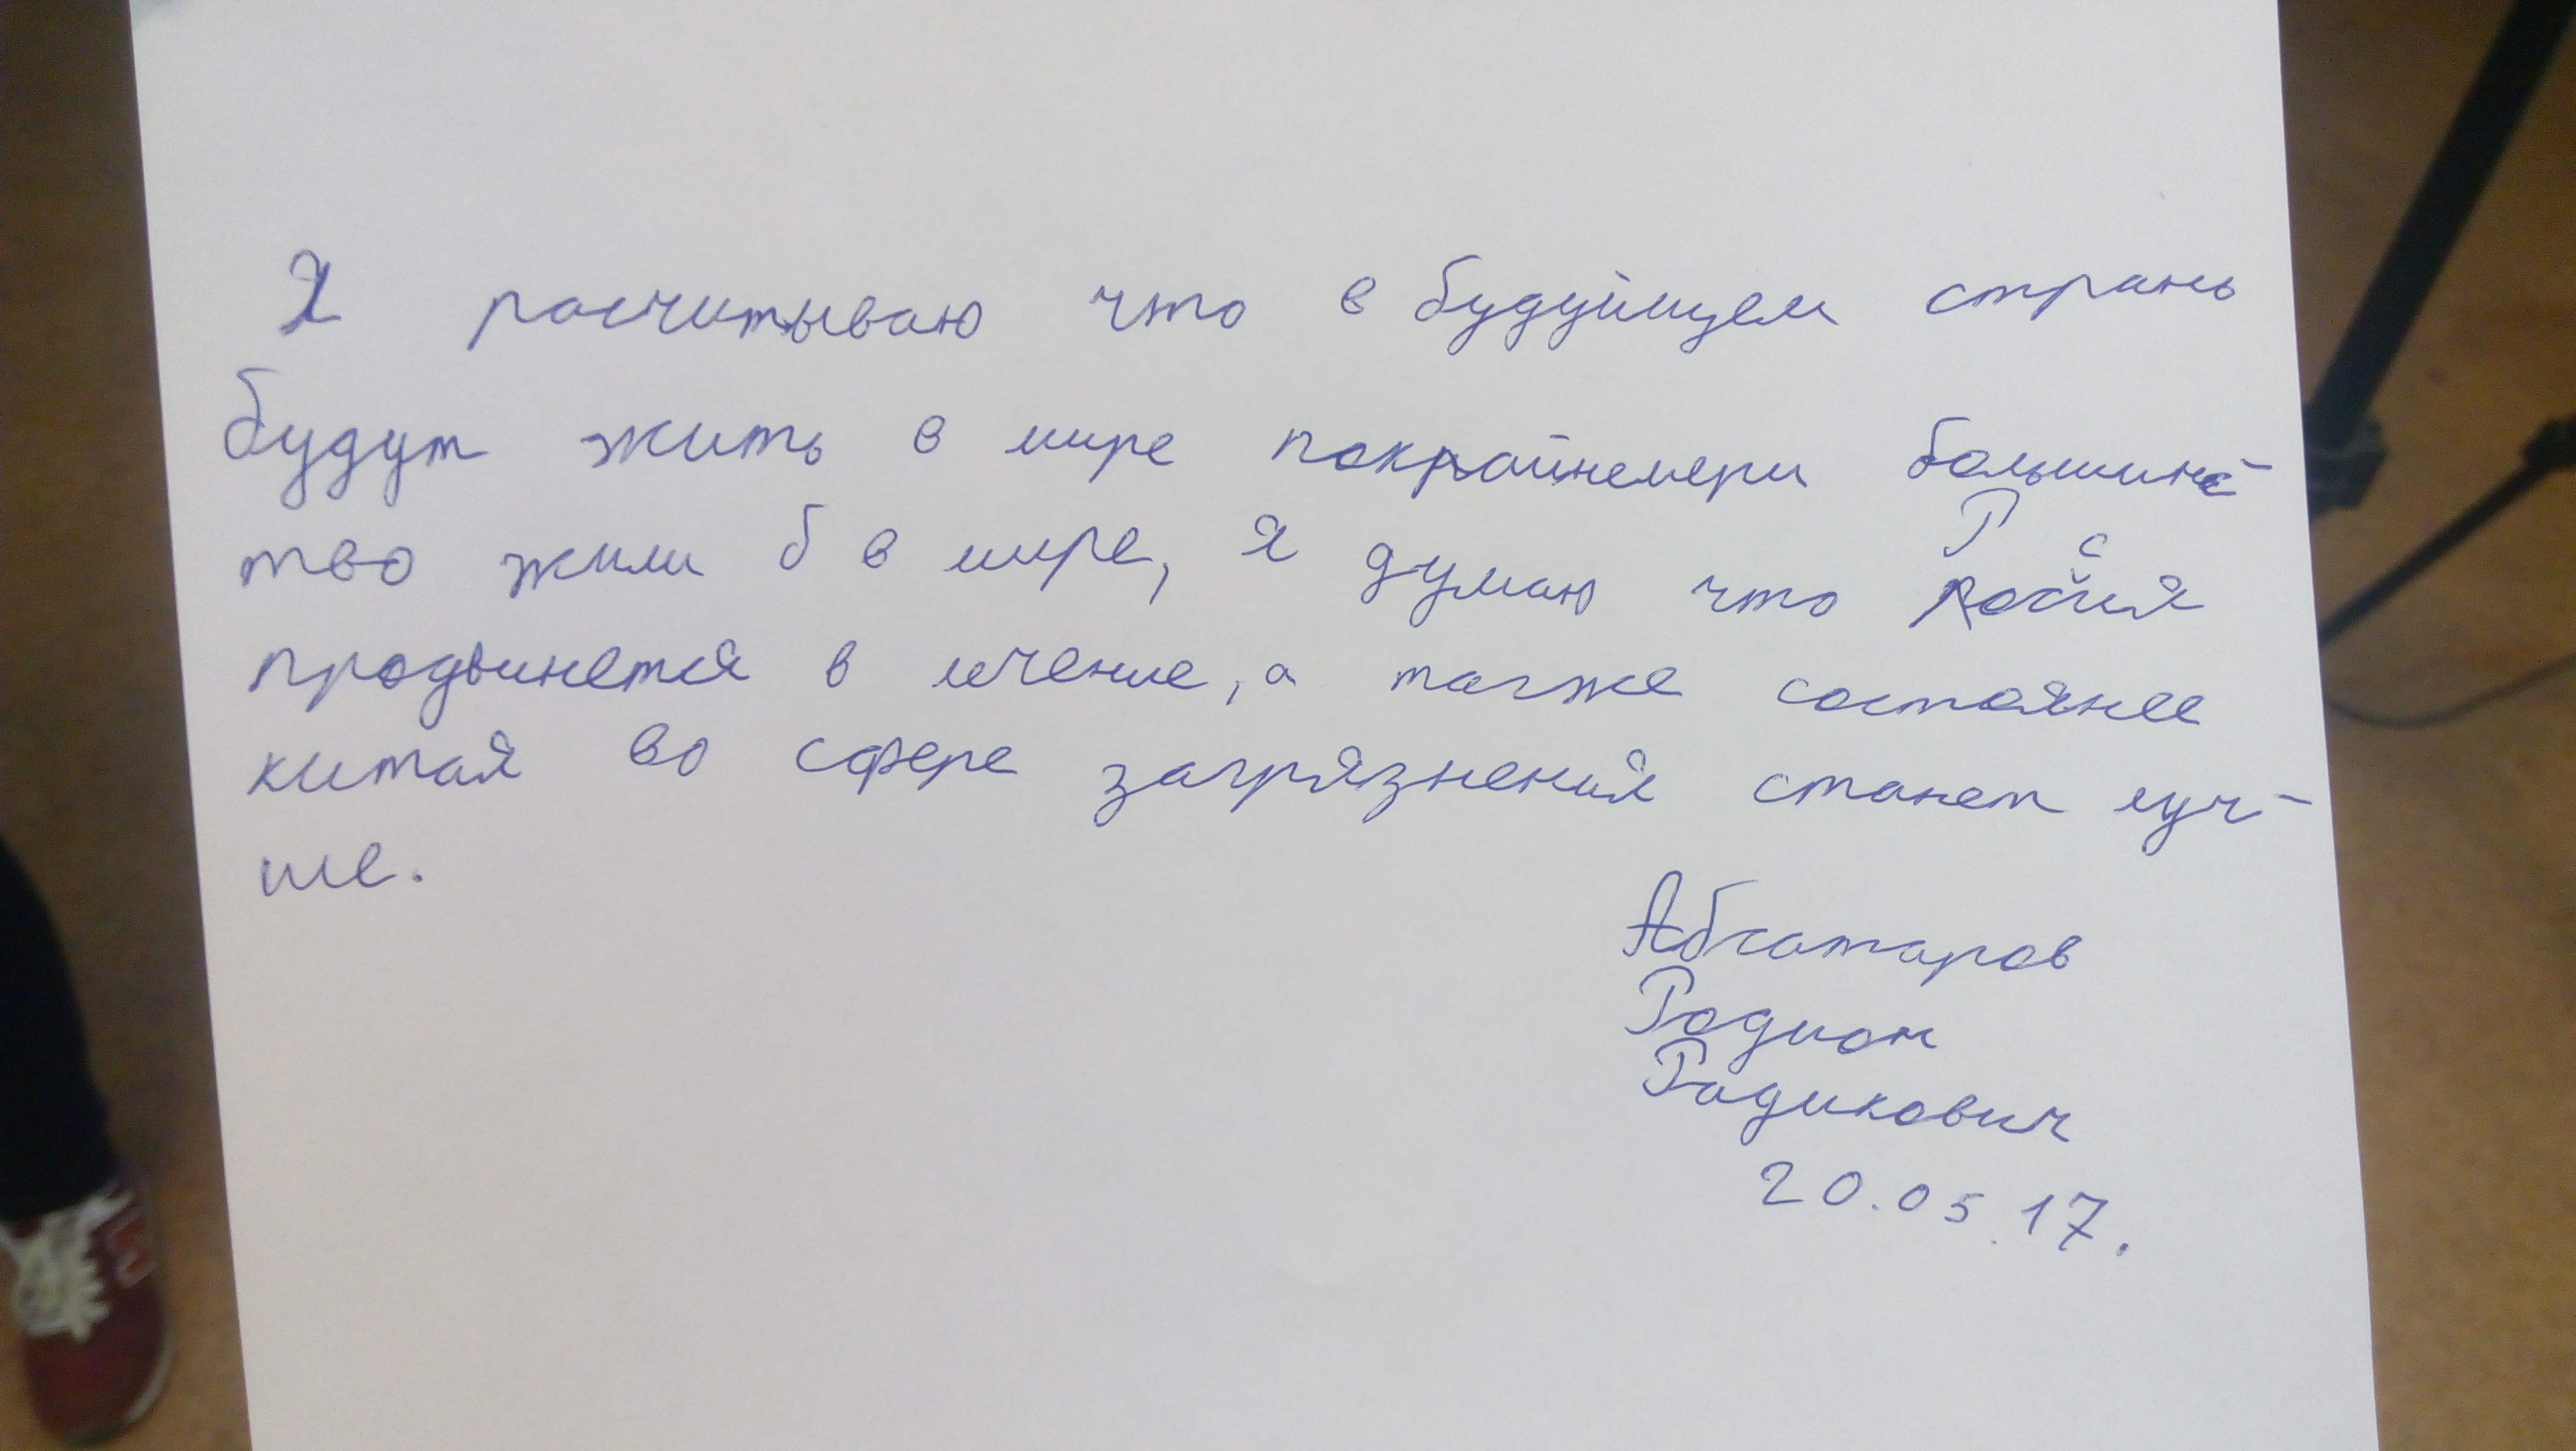 Я расчитываю что в будуйщем страны
будут жить в мире покрайнемери большинс-
тво жили б в мире, я думаю что Россия
продвинется в лечение, а также состоянее
китая во сфере загрязнения станет луч-
ше.
Абсатаров
Родион
Радикович
20.05.17.